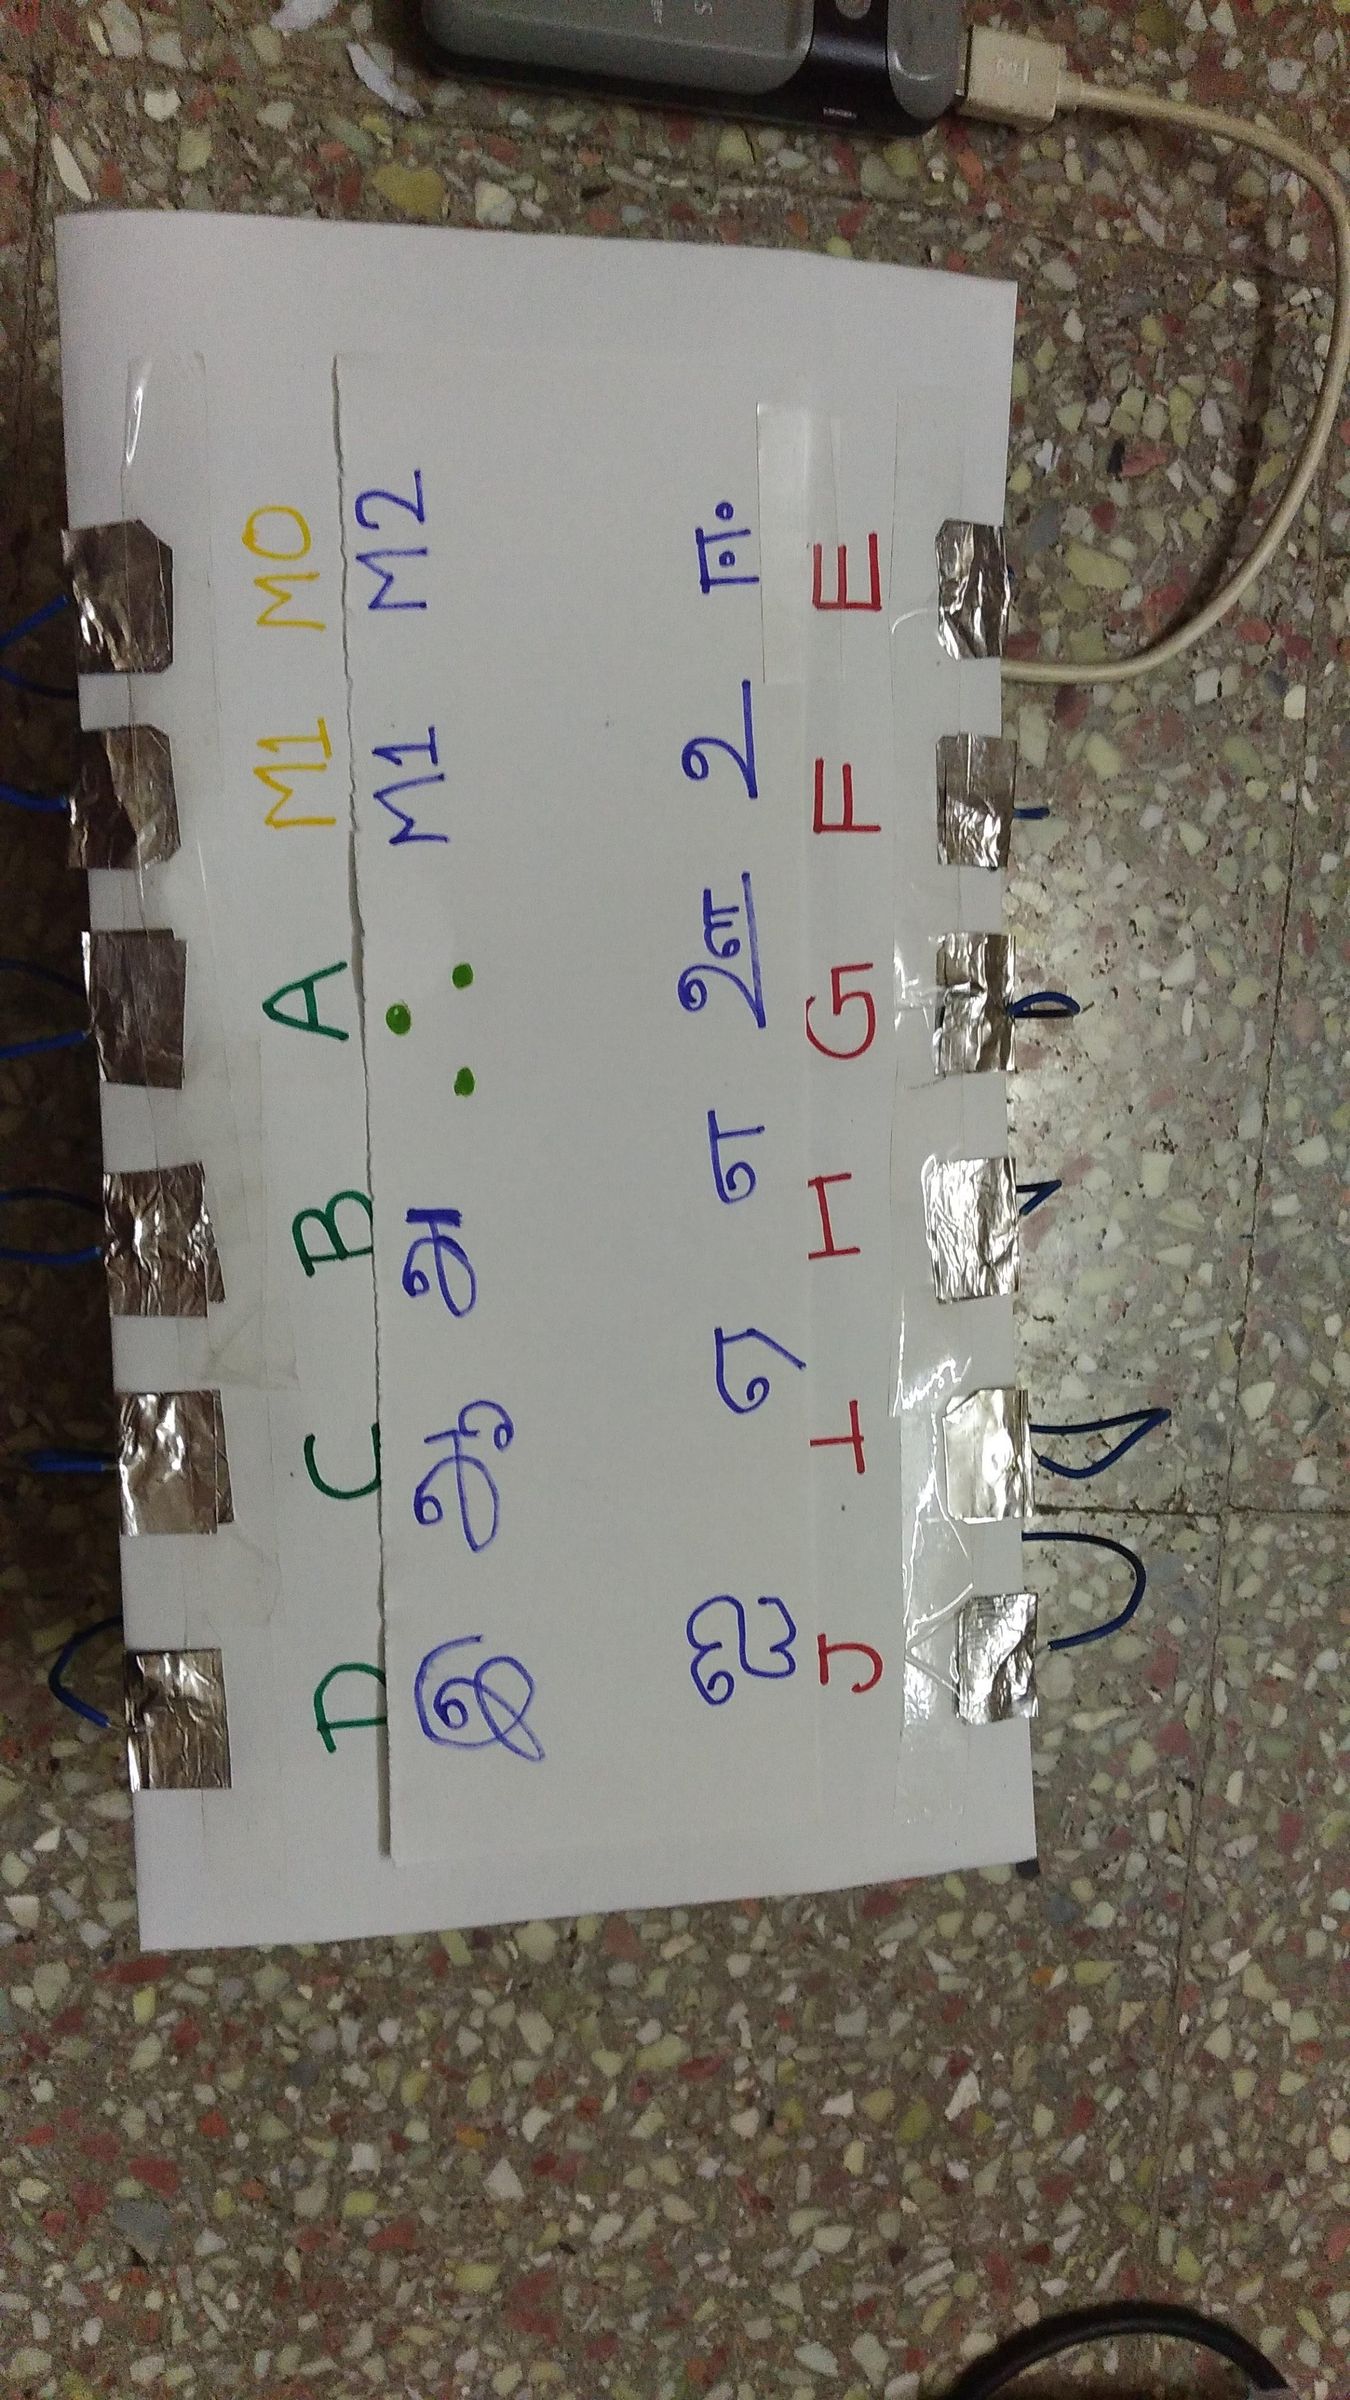 D C B A M1 M0
இ ஆ அ ஃ M1 M2
ஐ ஏ எ ஊ உ ஈ
J I H G F E